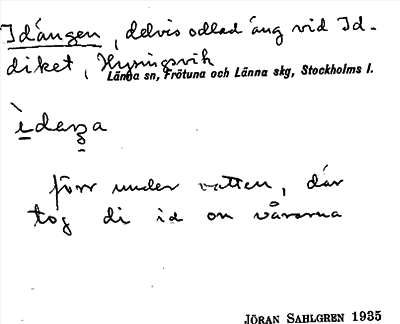 Idängen, delvis odlad äng vid Id-
diket, Hyningsvik
Länna sn, Frötuna och Länna skg, Stockholms l.
förr under vatten, där
tog di id om vårarna
JÖRAN SAHLGREN 1935